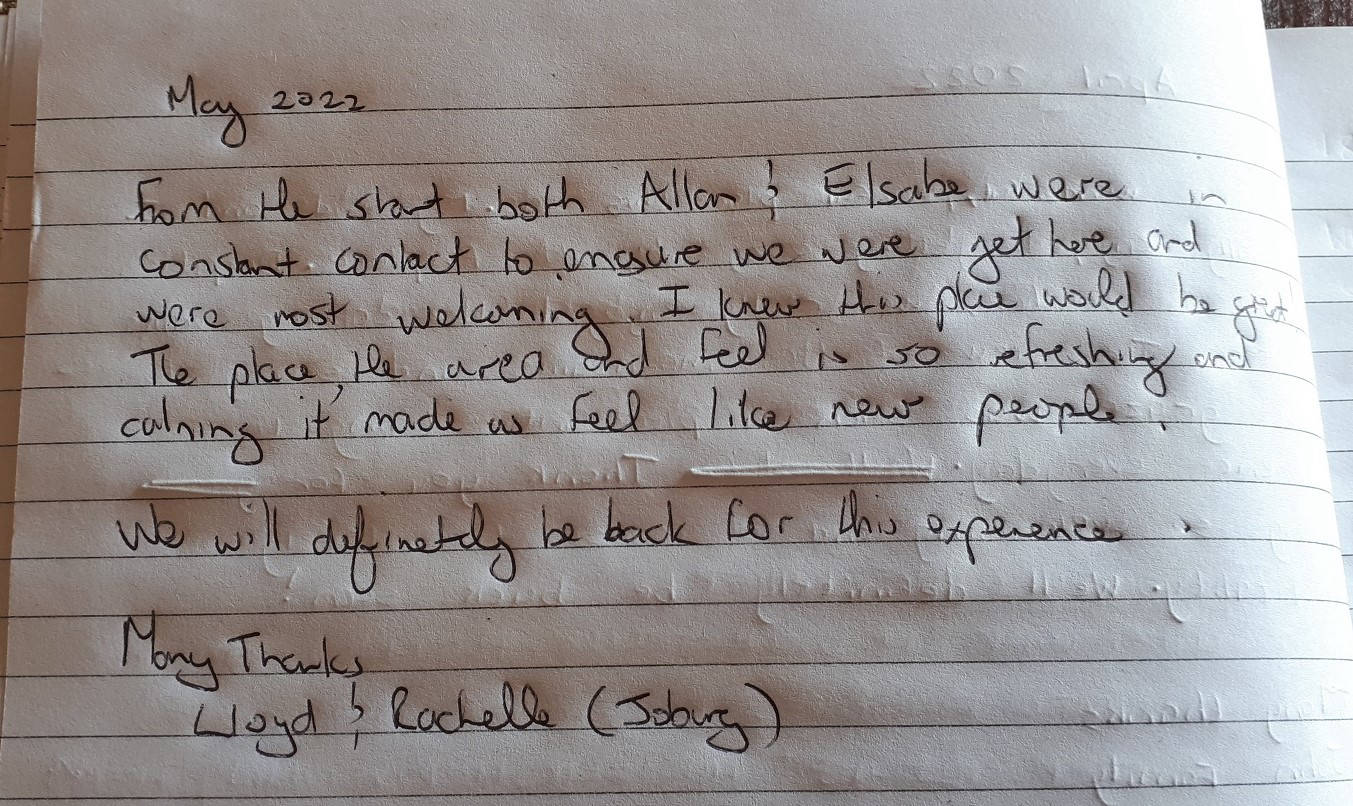 May 2022
From the start both Allan & Elsabe were in
constant contact to ensure we were get here and
were most welcoming. I knew this place would be great
The place, the area and feel is so refreshing and
calming it made us feel like new people.
We will definetely be back for this experience.
Many Thanks
Lloyd & Rachelle (Joburg)